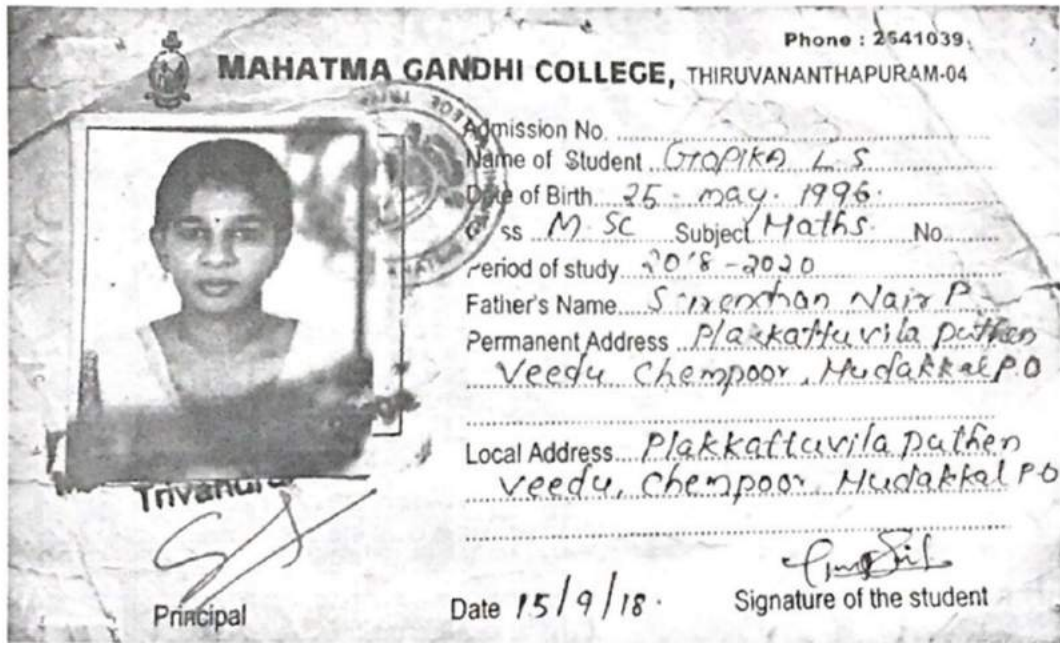 Phone : 2541039
MAHATMA GANDHI COLLEGE, THIRUVANANTHAPURAM-04
Admission No.
Name of Student GOPIKA L S
Date of Birth 25 - may - 1996.
ss M. SC Subject Maths. No
Period of study 2018 - 2020
Father's Name Nair P
Permanent Address Plakkattuvila puthen
veedu Chempoor, Mudakkal P.O
Local Address Plakkattuvila puthen
veedu, Chempoor, Mudakkal PO
Principal
Date 15/9/18.
Signature of the student